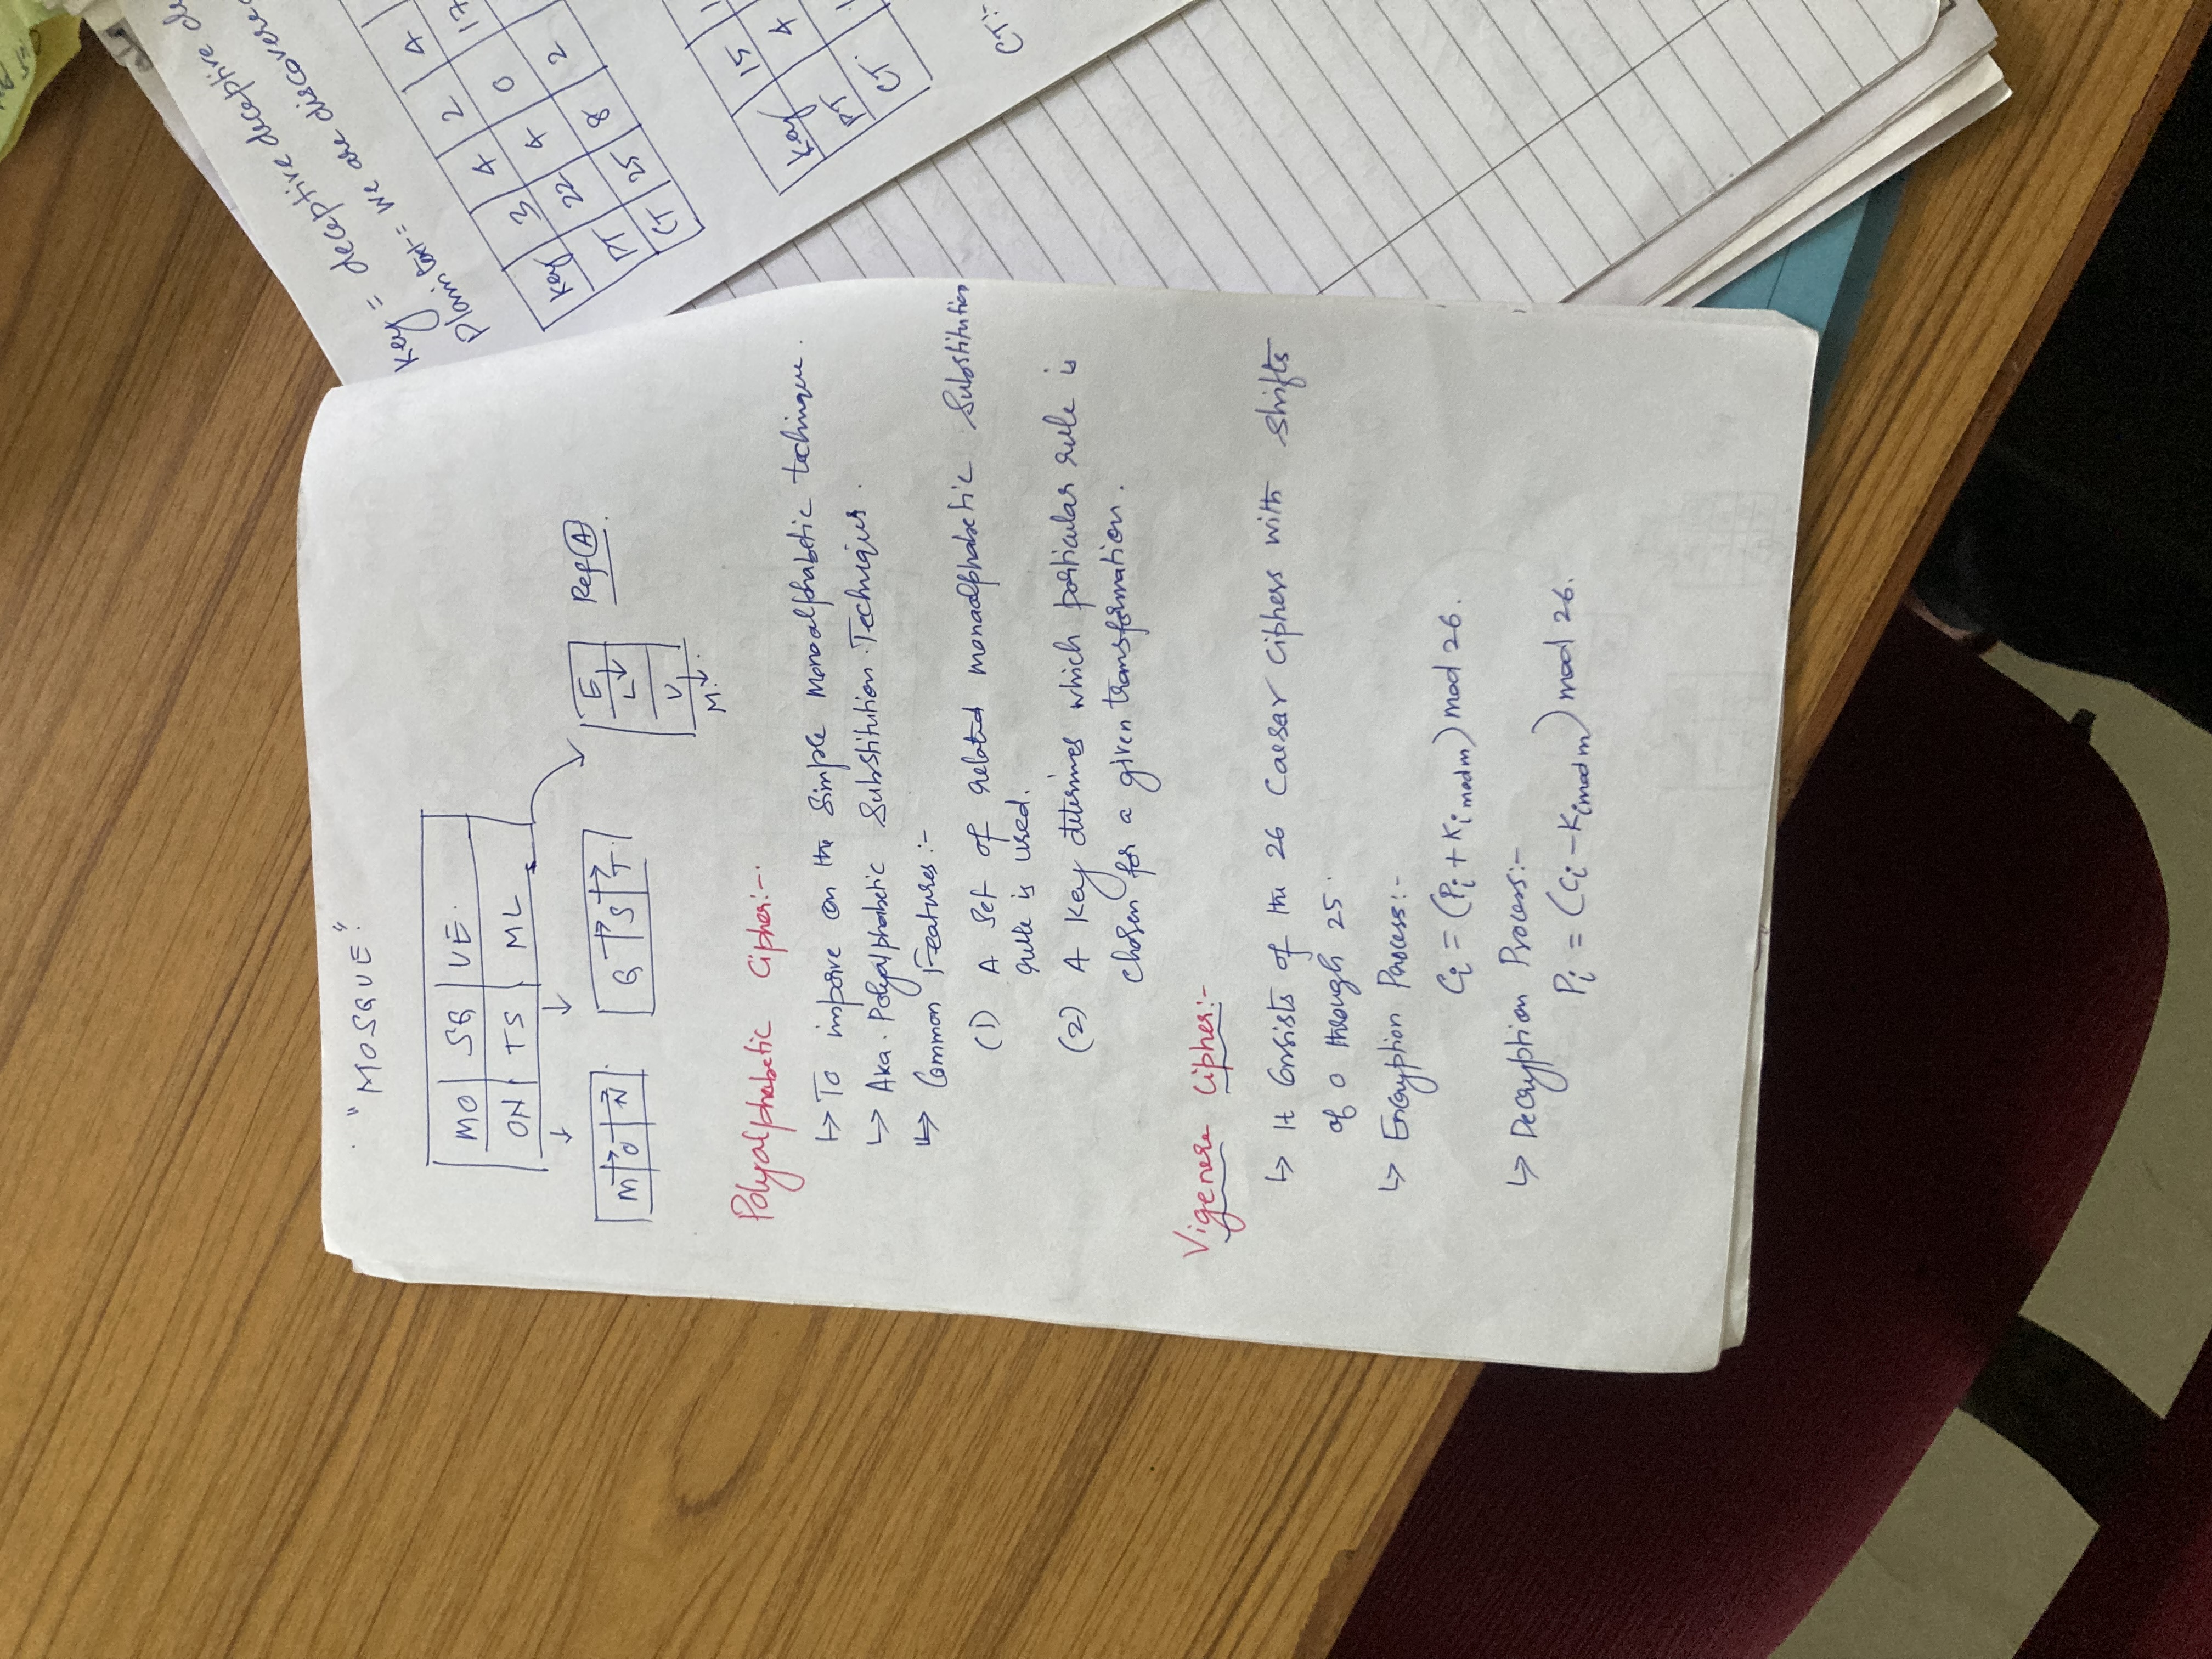 "MOSQUE"
MO SQ UE
ON TS ML
M O N
Q S T
E
L
U
M
Ref A
Polyalphabetic Cipher:-
↳ To improve on the Simple monoalphabetic technique.
↳ Aka. Polyalphabetic Substitution Techniques.
↳ Common Features:-
(1) A Set of related monoalphabetic Substitution
rule is used.
(2) A Key determines which particular rule is
chosen for a given transformation.
Vigenere Cipher:-
↳ It Consists of the 26 Caesar Ciphers with shifts
of 0 through 25.
↳ Encryption Process:-
Ci = (Pi + Ki mod m) mod 26.
↳ Decryption Process:-
Pi = (Ci - Ki mod m) mod 26.
Key = deceptive deceptive de
Plain text = we are discovered
Key 3 4 2 4
PT 22 4 0 17
CT 25 8 2
Key 15
PT 4
CT
CT:-